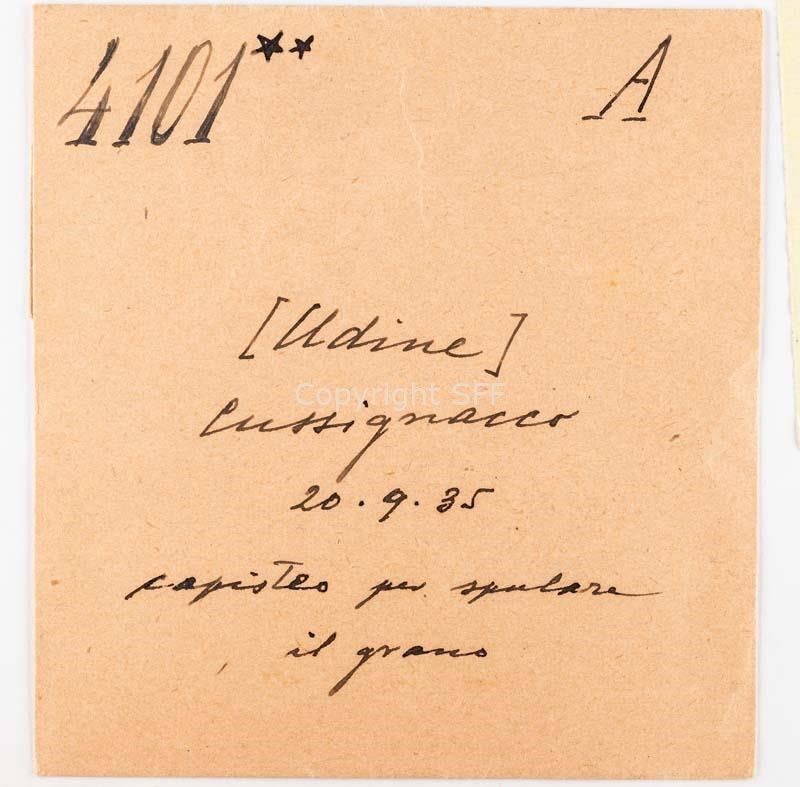 4101** A
[Udine]
Copyright SFF
Cussignacco
20.9.35
capisteo per spulare
il grano